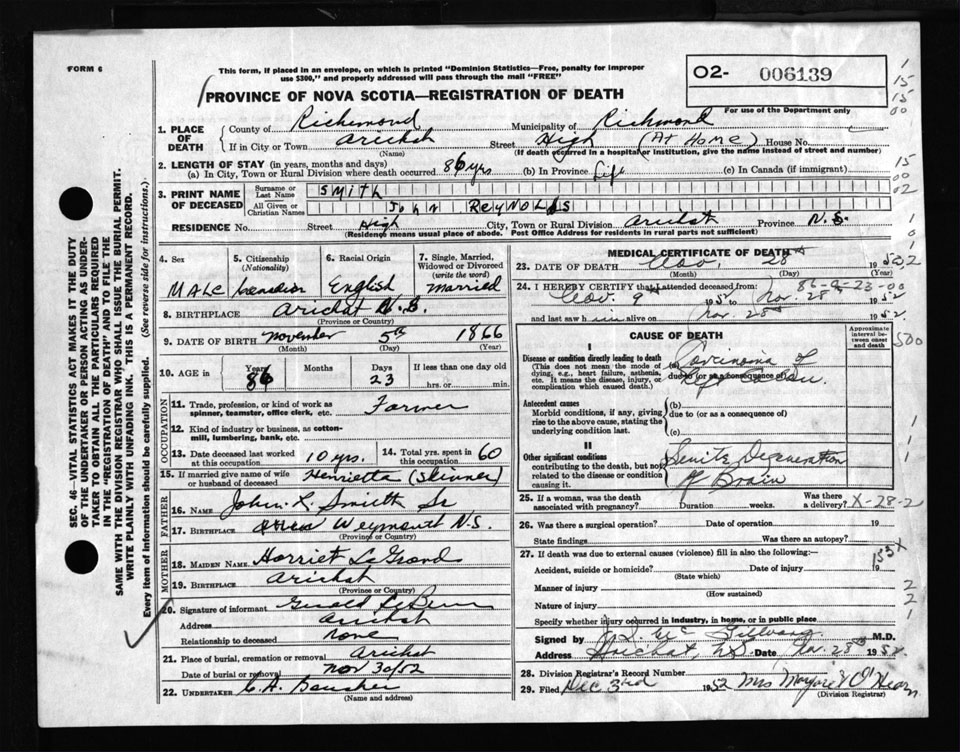 FORM 6
This form, if placed in an envelope, on which is printed "Dominion Statistics—Free, penalty for improper
use $300," and properly addressed will pass through the mail "FREE"
O2- 006139
For use of the Department only
PROVINCE OF NOVA SCOTIA—REGISTRATION OF DEATH
1. PLACE OF DEATH { County of Richmond Municipality of Richmond
If in City or Town Arichat Street High (At Home) House No.
(Name) (If death occurred in a hospital or institution, give the name instead of street and number)
2. LENGTH OF STAY (in years, months and days)
(a) In City, Town or Rural Division where death occurred 86 yrs (b) In Province Life (c) In Canada (if immigrant)
3. PRINT NAME OF DECEASED { Surname or Last Name SMITH
All Given or Christian Names JOHN REYNOLDS
RESIDENCE No. Street High City, Town or Rural Division Arichat Province N.S.
(Residence means usual place of abode. Post Office Address for residents in rural parts not sufficient)
SEC. 46 - VITAL STATISTICS ACT MAKES IT THE DUTY
OF THE UNDERTAKER OR PERSON ACTING AS UNDERTAKER TO OBTAIN ALL THE PARTICULARS REQUIRED
IN THE "REGISTRATION OF DEATH" AND TO FILE THE
SAME WITH THE DIVISION REGISTRAR WHO SHALL ISSUE THE BURIAL PERMIT.
WRITE PLAINLY WITH UNFADING INK. THIS IS A PERMANENT RECORD.
Every item of information should be carefully supplied. (See reverse side for instructions.)
4. Sex MALE
5. Citizenship (Nationality) Canadian
6. Racial Origin English
7. Single, Married, Widowed or Divorced (write the word) Married
8. BIRTHPLACE Arichat N.S.
(Province or Country)
9. DATE OF BIRTH November 5th 1866
(Month) (Day) (Year)
10. AGE in { Years 86 Months Days 23 If less than one day old
hrs. or min.
OCCUPATION
11. Trade, profession, or kind of work as
spinner, teamster, office clerk, etc. Farmer
12. Kind of industry or business, as cotton-
mill, lumbering, bank, etc.
13. Date deceased last worked
at this occupation 10 yrs. 14. Total yrs. spent in
this occupation 60
15. If married give name of wife
or husband of deceased Henrietta (Skinner)
FATHER
16. Name John L. Smith Sr
17. Birthplace Weymouth N.S.
(Province or Country)
MOTHER
18. Maiden Name Harriet LeGrand
19. Birthplace Arichat
(Province or Country)
20. Signature of informant Gerald
Address Arichat
Relationship to deceased none
21. Place of burial, cremation or removal Arichat
Date of burial or removal Nov 30/52
22. UNDERTAKER C. H.
(Name and address)
MEDICAL CERTIFICATE OF DEATH
23. DATE OF DEATH Nov. 28th 1952
(Month) (Day) (Year)
24. I HEREBY CERTIFY that I attended deceased from
Nov. 9th 1952 to Nov. 28 1952
and last saw him alive on Nov. 28th 1952
CAUSE OF DEATH
Approximate interval between onset and death
I
Disease or condition directly leading to death
(This does not mean the mode of
dying, e.g., heart failure, asthenia,
etc. It means the disease, injury, or
complication which caused death.)
Carcinoma of
due to (or as a consequence of)
Antecedent causes
Morbid conditions, if any, giving
rise to the above cause, stating the
underlying condition last.
(b)
due to (or as a consequence of)
(c)
II
Other significant conditions
contributing to the death, but not
related to the disease or condition
causing it.
Senile Degeneration
of Brain
25. If a woman, was the death
associated with pregnancy? Duration weeks. Was there
a delivery? X-28-2
26. Was there a surgical operation? Date of operation 19
State findings Was there an autopsy?
27. If death was due to external causes (violence) fill in also the following:—
Accident, suicide or homicide? Date of injury 19
(State which)
Manner of injury
(How sustained)
Nature of injury
Specify whether injury occurred in industry, in home, or in public place
Signed by M.D.
Address Arichat, N.S. Date Nov. 28th 1952
28. Division Registrar's Record Number
29. Filed Dec 3rd 1952 Mrs Marjorie O'Hearn
(Division Registrar)